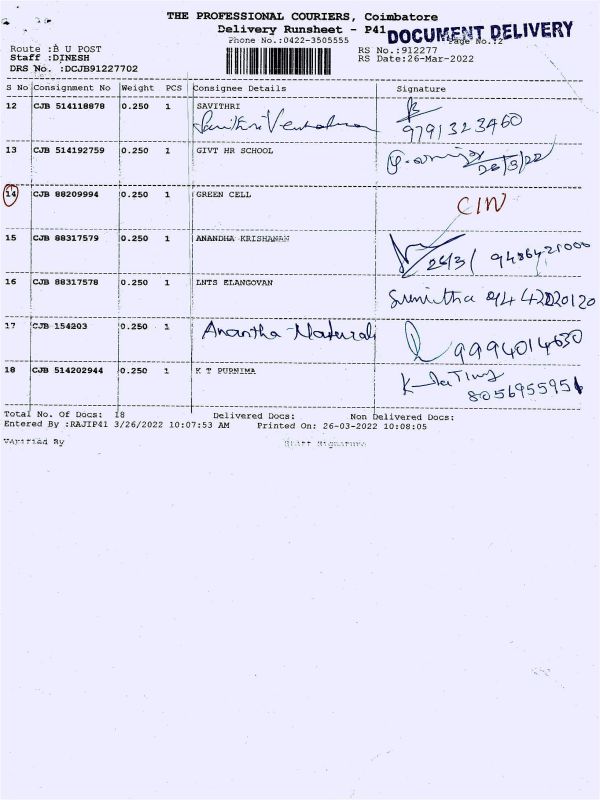 THE PROFESSIONAL COURIERS, Coimbatore
Delivery Runsheet - P41
DOCUMENT DELIVERY
Phone No.:0422-3505555
Page No.:2
Route :B U POST
RS No.:912277
Staff :DINESH
RS Date:26-Mar-2022
DRS No. :DCJB91227702
S No Consignment No Weight PCS Consignee Details Signature
12 CJB 514118878 0.250 1 SAVITHRI
9791323460
13 CJB 514192759 0.250 1 GIVT HR SCHOOL
26/3/22
14 CJB 88209994 0.250 1 GREEN CELL
CIN
15 CJB 88317579 0.250 1 ANANDHA KRISHANAN
26/3/ 9486421000
16 CJB 88317578 0.250 1 LNTS ELANGOVAN
Sumitha
17 CJB 154203 0.250 1 Anantha Materials
9994014630
18 CJB 514202944 0.250 1 K T PURNIMA
8056955951
Total No. Of Docs: 18 Delivered Docs: Non Delivered Docs:
Entered By :RAJIP41 3/26/2022 10:07:53 AM Printed On: 26-03-2022 10:08:05
Verified By Staff Signature